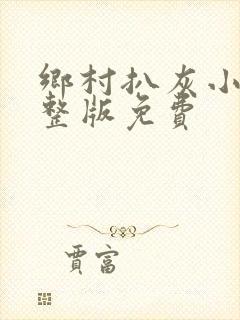 鄉村扒灰小
整版免費
賈富